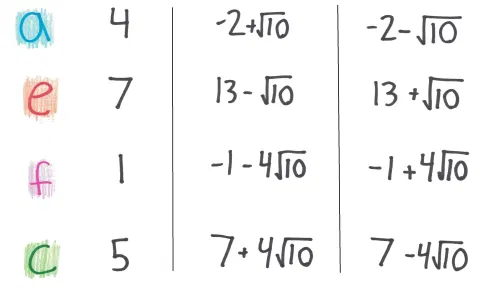 a 4 -2+√10 -2-√10
e 7 13-√10 13+√10
f 1 -1-4√10 -1+4√10
c 5 7+4√10 7-4√10